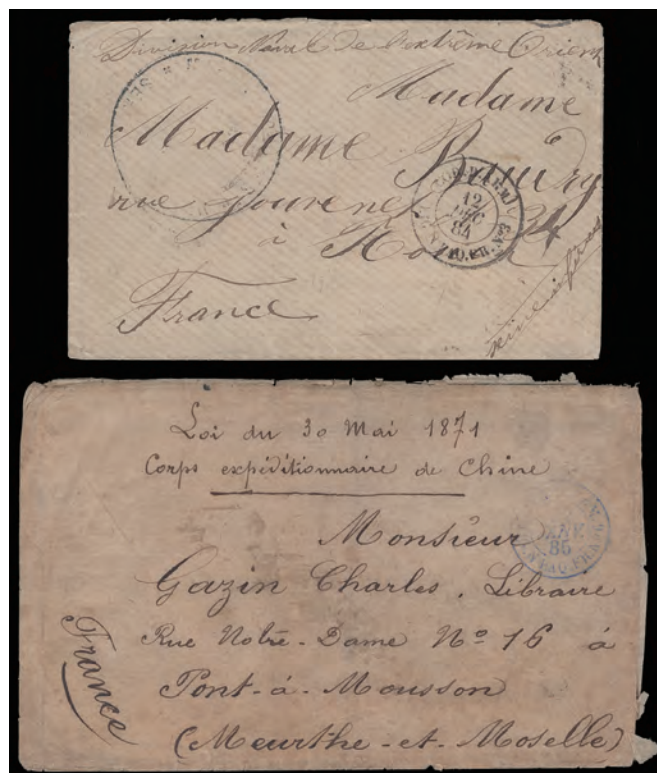 Division Naval de l'extrême Orient
Madame
Madame Baudry
rue
à
France
12
DEC
84
PAQ. FR. Nº3
Loi du 30 Mai 1871
Corps expéditionnaire de Chine
Monsieur
Gazin Charles, Libraire
Rue Notre-Dame Nº 16 à
Pont-à-Mousson
(Meurthe-et-Moselle)
France
86